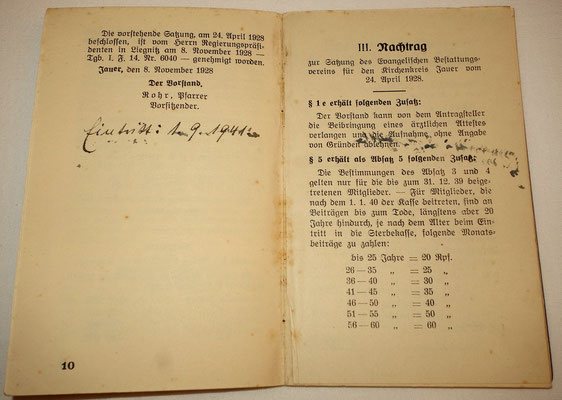 Die vorstehende Satzung, am 24. April 1928
beschlossen, ist vom Herrn Regierungspräsi-
denten in Liegnitz am 8. November 1928 —
Tgb. I. F. 14. Nr. 6040 — genehmigt worden.
Jauer, den 8. November 1928
Der Vorstand,
Rohr, Pfarrer
Vorsitzender.
Eintritt: 1.9.1941.
10
III. Nachtrag
zur Satzung des Evangelischen Bestattungs-
vereins für den Kirchenkreis Jauer vom
24. April 1928.
§ 1 e erhält folgenden Zusatz:
Der Vorstand kann von dem Antragsteller
die Beibringung eines ärztlichen Attestes
verlangen und die Aufnahme ohne Angabe
von Gründen ablehnen.
§ 5 erhält als Absatz 5 folgenden Zusatz:
Die Bestimmungen des Absatz 3 und 4
gelten nur für die bis zum 31. 12. 39 beige-
tretenen Mitglieder. — Für Mitglieder, die
nach dem 1. 1. 40 der Kasse beitreten, sind an
Beiträgen bis zum Tode, längstens aber 20
Jahre hindurch, je nach dem Alter beim Ein-
tritt in die Sterbekasse, folgende Monats-
beiträge zu zahlen:
bis 25 Jahre = 20 Rpf.
26—35 „ = 25 „
36—40 „ = 30 „
41—45 „ = 35 „
46—50 „ = 40 „
51—55 „ = 50 „
56—60 „ = 60 „